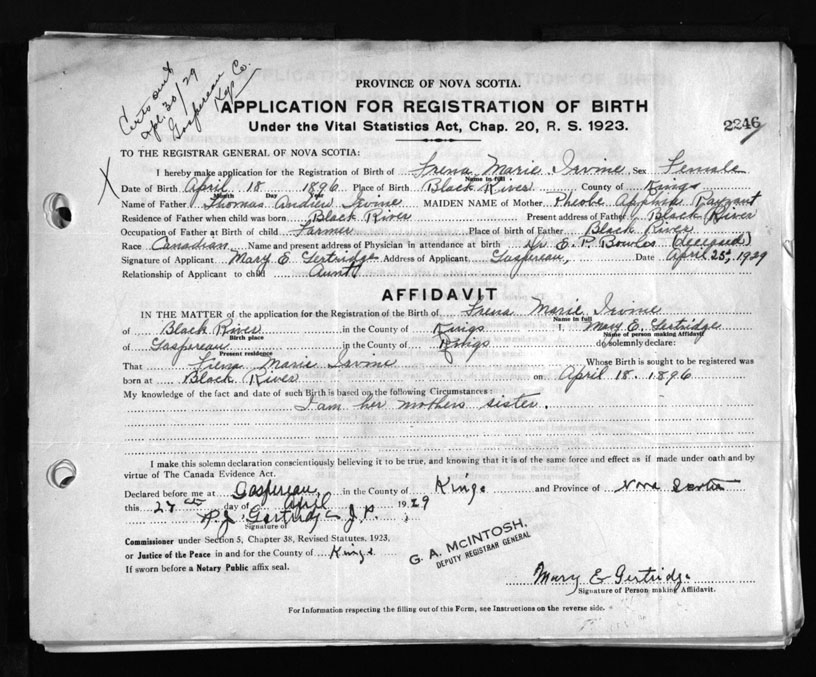 Certs out
Apl. 30/29
Gaspereau
Kgs Co.
PROVINCE OF NOVA SCOTIA.
APPLICATION FOR REGISTRATION OF BIRTH
Under the Vital Statistics Act, Chap. 20, R. S. 1923.
2246
X
TO THE REGISTRAR GENERAL OF NOVA SCOTIA:
I hereby make application for the Registration of Birth of Irena Marie Irvine Sex Female
Name in full
Date of Birth April 18 1896 Place of Birth Black River County of Kings
Month Day
Name of Father Thomas Andrew Irvine MAIDEN NAME of Mother Pheobe Payzant
Residence of Father when child was born Black River Present address of Father Black River
Occupation of Father at Birth of child Farmer Place of birth of Father Black River
Race Canadian Name and present address of Physician in attendance at birth Dr. E. P. Bowles (deceased)
Signature of Applicant Mary E. Gertridge Address of Applicant, Gaspereau, Date April 25, 1929
Relationship of Applicant to child Aunt
AFFIDAVIT
IN THE MATTER of the application for the Registration of the Birth of Irena Marie Irvine
Name in full
of Black River in the County of Kings I, Mary E. Gertridge
Birth place Name of person making Affidavit
of Gaspereau in the County of Kings do solemnly declare:
Present residence
That Irena Marie Irvine Whose Birth is sought to be registered was
born at Black River on April 18. 1896
My knowledge of the fact and date of such Birth is based on the following Circumstances:
I am her mothers sister.
I make this solemn declaration conscientiously believing it to be true, and knowing that it is of the same force and effect as if made under oath and by
virtue of The Canada Evidence Act.
Declared before me at Gaspereau in the County of Kings and Province of Nova Scotia
this 27th day of April 1929
Gertridge J.P. ;
Signature of
Commissioner under Section 5, Chapter 38, Revised Statutes, 1923.
or Justice of the Peace in and for the County of Kings
If sworn before a Notary Public affix seal.
G. A. McINTOSH,
DEPUTY REGISTRAR GENERAL
Mary E Gertridge
Signature of Person making Affidavit.
For Information respecting the filling out of this Form, see Instructions on the reverse side.